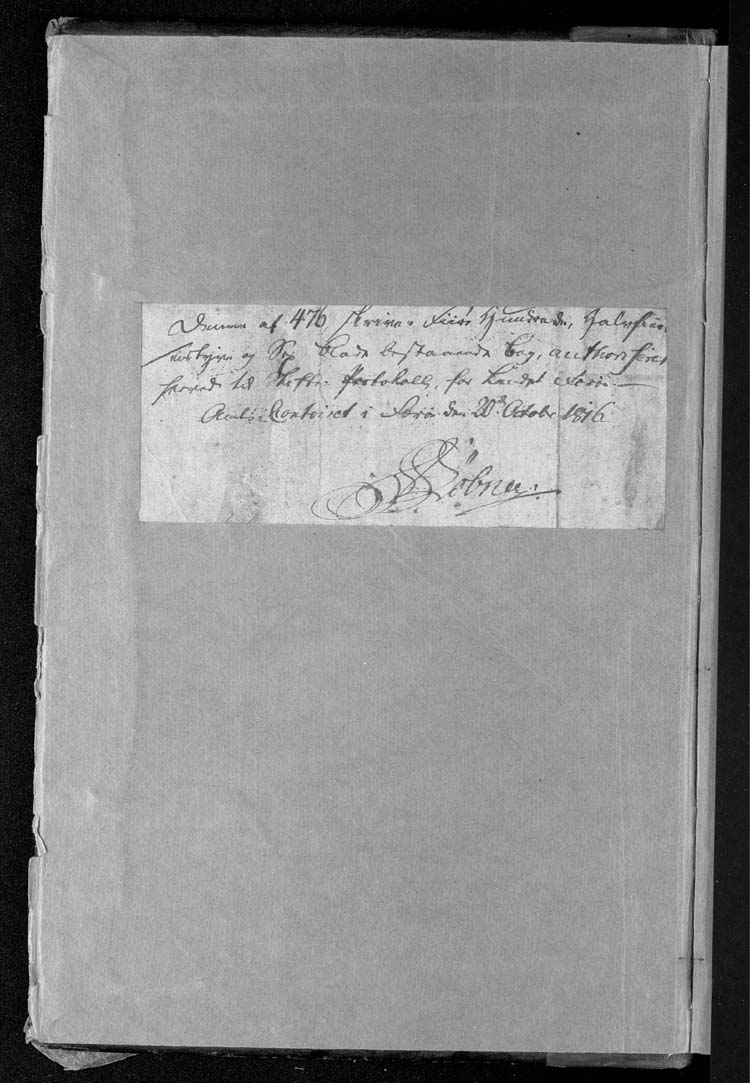 Denne af 476, skriver Fiire Hundrede, Halvfier-
sindstyve og Sex Blade bestaaende Bog, authoriseres
herved til Skifte-Protokoll, for Landet Færøe.
Amts-Contoiret i Færøe den 20de October 1816
Løbner.